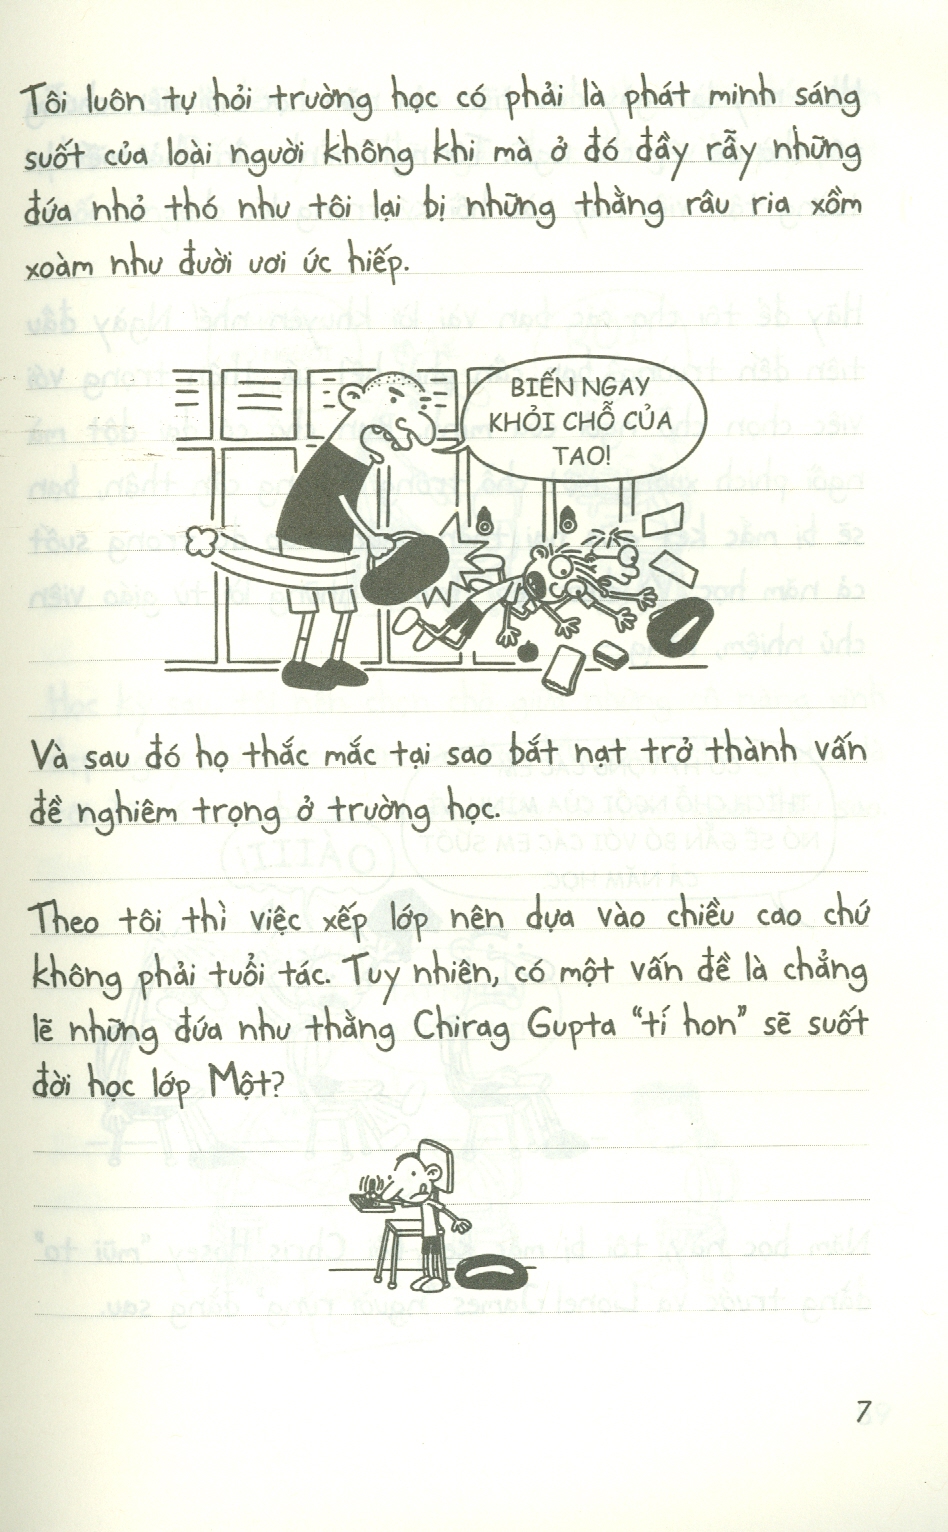 Tôi luôn tự hỏi trường học có phải là phát minh sáng
suốt của loài người không khi mà ở đó đầy rẫy những
đứa nhỏ thó như tôi lại bị những thằng râu ria xồm
xoàm như đười ươi ức hiếp.
BIẾN NGAY
KHỎI CHỖ CỦA
TAO!
Và sau đó họ thắc mắc tại sao bắt nạt trở thành vấn
đề nghiêm trọng ở trường học.
Theo tôi thì việc xếp lớp nên dựa vào chiều cao chứ
không phải tuổi tác. Tuy nhiên, có một vấn đề là chẳng
lẽ những đứa như thằng Chirag Gupta "tí hon" sẽ suốt
đời học lớp Một?
7